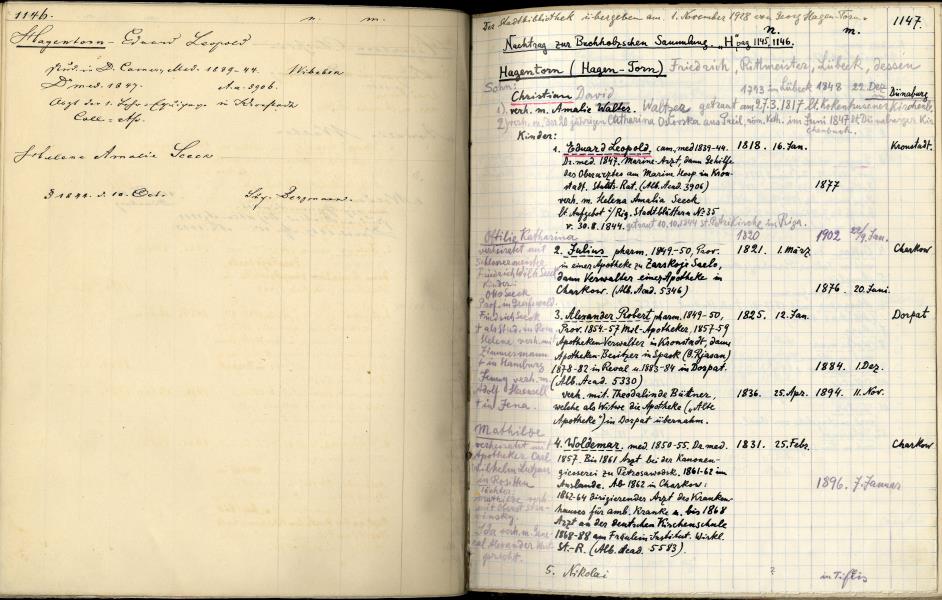 1146.
n. m.
Hagentorn - Eduard Leopold
stud. in D. Camer., Med. 1839-44.
D. med. 1847. A.a. 3906.
Arzt der 1. Equipage in Kronstadt
Coll.-Ass.
Helena Amalie Seeck
1844. d. 10. Oct.
Der Stadtbibliothek übergeben am 1. November 1928 von Georg Hagen-Torn.
1147.
n. m.
Nachtrag zur Buchholzschen Sammlung. „H" pag 1145, 1146.
Hagentorn (Hagen-Torn) Friedrich, Rittmeister, Lübeck, dessen
Sohn:
Christian David 1793 in Lübeck 1848 22. Dez. Dünaburg
1) verh. m. Amalie Walter. Waltzer getraut am 27.3.1817 lt. Kokenhusener Kirchenb.
2) verh. m. der 20 jährigen Catharina Osterska aus Preil, röm. Kath. im Juni 1847 lt. Dünaburger Kir
chenbuch.
Kinder:
1. Eduard Leopold, cam, med 1839-44. 1818. 16. Jan. Kronstadt.
Dr. med. 1847. Marine-Arzt, dann Gehilfe
des Oberarztes am Marine Hosp in Kron-
stadt. Staats-Rat. (Alb. Acad. 3906) 1877
verh. m. Helena Amalia Seeck
lt Aufgebot i/ Rig. Stadtblättern № 35
v. 30.8.1844. getraut 10.10.1844 St. Petri Kirche zu Riga.
Ottilie Katharina 1820 1902 22/9. Jan.
verheiratet mit
Friedrich Wilh Seeck
Kinder:
Otto Seeck
Prof. in Greifswald.
Friedrich Seeck
† als Stud. in Rom
Helene verh. mi
Zimmermann
† in Hamburg
Jenny verh. m
Adolf
† in Jena.
2. Julius pharm. 1849-50, Prov. 1821. 1. März Charkow
in einer Apotheke zu Zarskoje Sselo,
dann Verwalter einer Apotheke in
Charkow. (Alb. Acad. 5346) 1876. 20. Juni.
3. Alexander Robert pharm. 1849-50, 1825. 12. Jan. Dorpat
Prov. 1854-57 Mol-Apotheker, 1857-59
Apotheken-Verwalter in Kronstadt, dann
Apotheken-Besitzer in Spask (G. Rjasan)
1878-82 in Reval u. 1883-84 in Dorpat. 1884. 1. Dez.
(Alb. Acad. 5330)
verh. mit. Theodalinde Büttner, 1836. 25. Apr. 1894. 11. Nov.
welche als Witwe die Apotheke („Alte
Apotheke") in Dorpat übernahm.
Mathilde
verheiratet mit
Apotheker Carl
Wilhelm
in Rositten
Töchter:
Mathilde verh.
mit Oberst
Ida verh. m. Gene
ral Alexander
4. Woldemar, med. 1850-55. Dr. med. 1831. 25. Febr. Charkow
1857. Bis 1861 Arzt bei der Kanonen-
giesserei zu Petrosawodsk. 1861-62 im
Auslande. Ab 1862 in Charkow: 1896. 7. Januar
1862-64 dirigierender Arzt des Kranken-
hauses für amb. Kranke u. bis 1868
Arzt an der deutschen Kirchenschule
1868-88 am Fräulein Institut. Wirkl.
St.-R. (Alb. Acad. 5583).
5. Nikolai ? in Tiflis